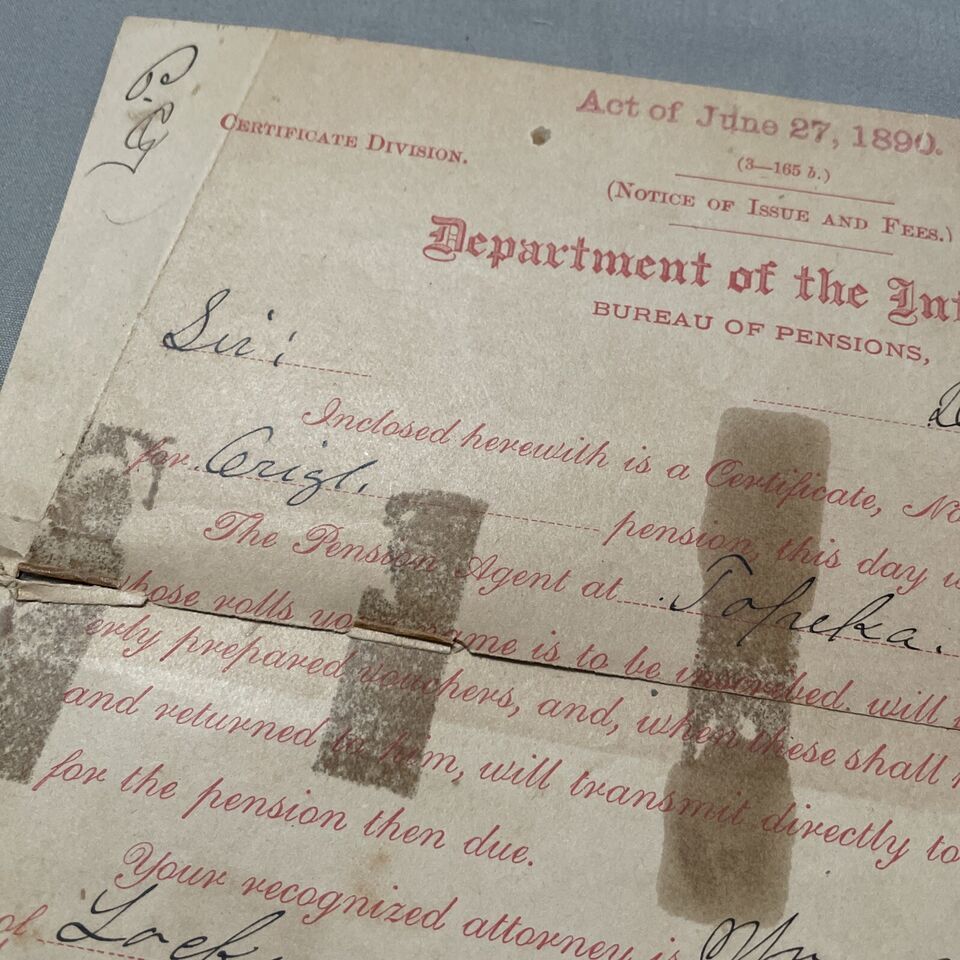 Act of June 27, 1890.
CERTIFICATE DIVISION.
(3—165 b.)
(NOTICE OF ISSUE AND FEES.)
Department of the
BUREAU OF PENSIONS,
Sir:
Inclosed herewith is a Certificate, No
for Origl. pension, this day
The Pension Agent at Topeka.
whose rolls your name is to be inscribed, will
erly prepared vouchers, and, when these shall
and returned to him, will transmit directly to
for the pension then due.
Your recognized attorney is Wm
of